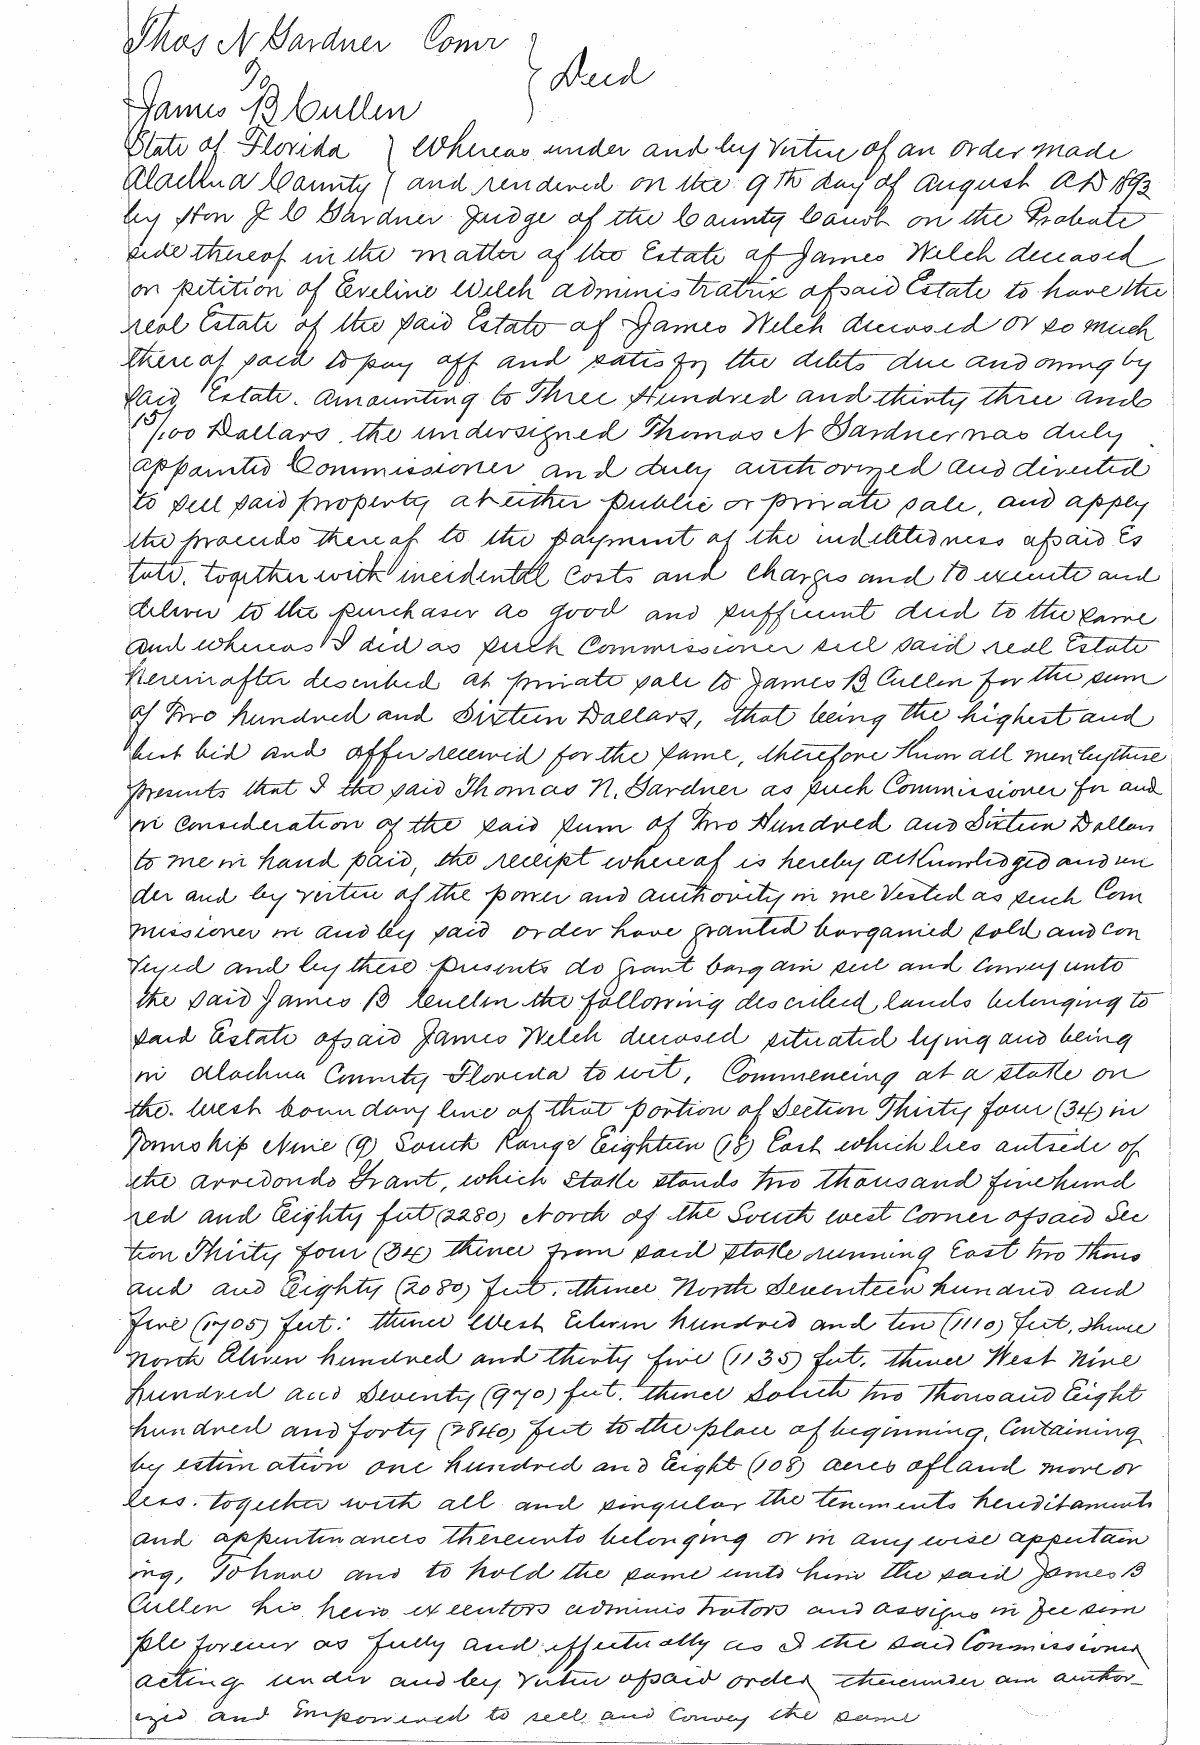 Thos N Gardner Comr }
To } Deed
James B Cullen
State of Florida } Whereas under and by virtue of an order made
Alachua County { and rendered on the 9th day of August AD 1893
by Hon J C Gardner Judge of the County Court on the Probate
side thereof in the matter of the Estate of James Welch deceased
on petition of Eveline Welch administratrix of said Estate to have the
real Estate of the said Estate of James Welch deceased or so much
thereof said to pay off and satisfy the debts due and owing by
said Estate. amounting to Three Hundred and thirty three and
15/100 Dollars. the undersigned Thomas N Gardner was duly
appointed Commissioner and duly authorized and directed
to sell said property at either public or private sale, and apply
the proceeds thereof to the payment of the indebtedness of said Es
tate, together with incidental Costs and charges and to execute and
deliver to the purchaser as good and sufficient deed to the same
and whereas I did as such Commissioner sell said real Estate
hereinafter described at private sale to James B Cullen for the sum
of Two hundred and Sixteen Dollars, that being the highest and
best bid and offer received for the same, therefore Know all men by these
presents that I the said Thomas N. Gardner as such Commissioner for and
in consideration of the said sum of Two Hundred and Sixteen Dollars
to me in hand paid, the receipt whereof is hereby acknowledged and un
der and by virtue of the power and authority in me vested as such Com
missioner in and by said order have granted bargained sold and con
veyed and by these presents do grant bargain sell and convey unto
the said James B Cullen the following described lands belonging to
said Estate of said James Welch deceased situated lying and being
in Alachua County Florida to wit, Commencing at a stake on
the. West boundary line of that portion of Section Thirty four (34) in
Township Nine (9) South Range Eighteen (18) East which lies outside of
the Arredondo Grant, which stake stands two thousand five hund
red and Eighty feet (2280) North of the South west Corner of said Sec
tion Thirty four (34) thence from said stake running East two thous
and and Eighty (2080) feet. thence North Seventeen hundred and
five (1705) feet: thence West Eleven hundred and ten (1110) feet, thence
North Eleven hundred and thirty five (1135) feet. thence West Nine
hundred and Seventy (970) feet. thence South two Thousand Eight
hundred and forty (2840) feet to the place of beginning, Containing
by estimation one hundred and Eight (108) acres of land more or
less. together with all and singular the tenements hereditaments
and appurtinances thereunto belonging or in any wise appertain
ing, To have and to hold the same unto him the said James B
Cullen his heirs executors administrators and assigns in fee sim
ple forever as fully and effectually as I the said Commissioner
acting under and by virtue of said order thereunder am author-
ized and Empowered to sell and Convey the same